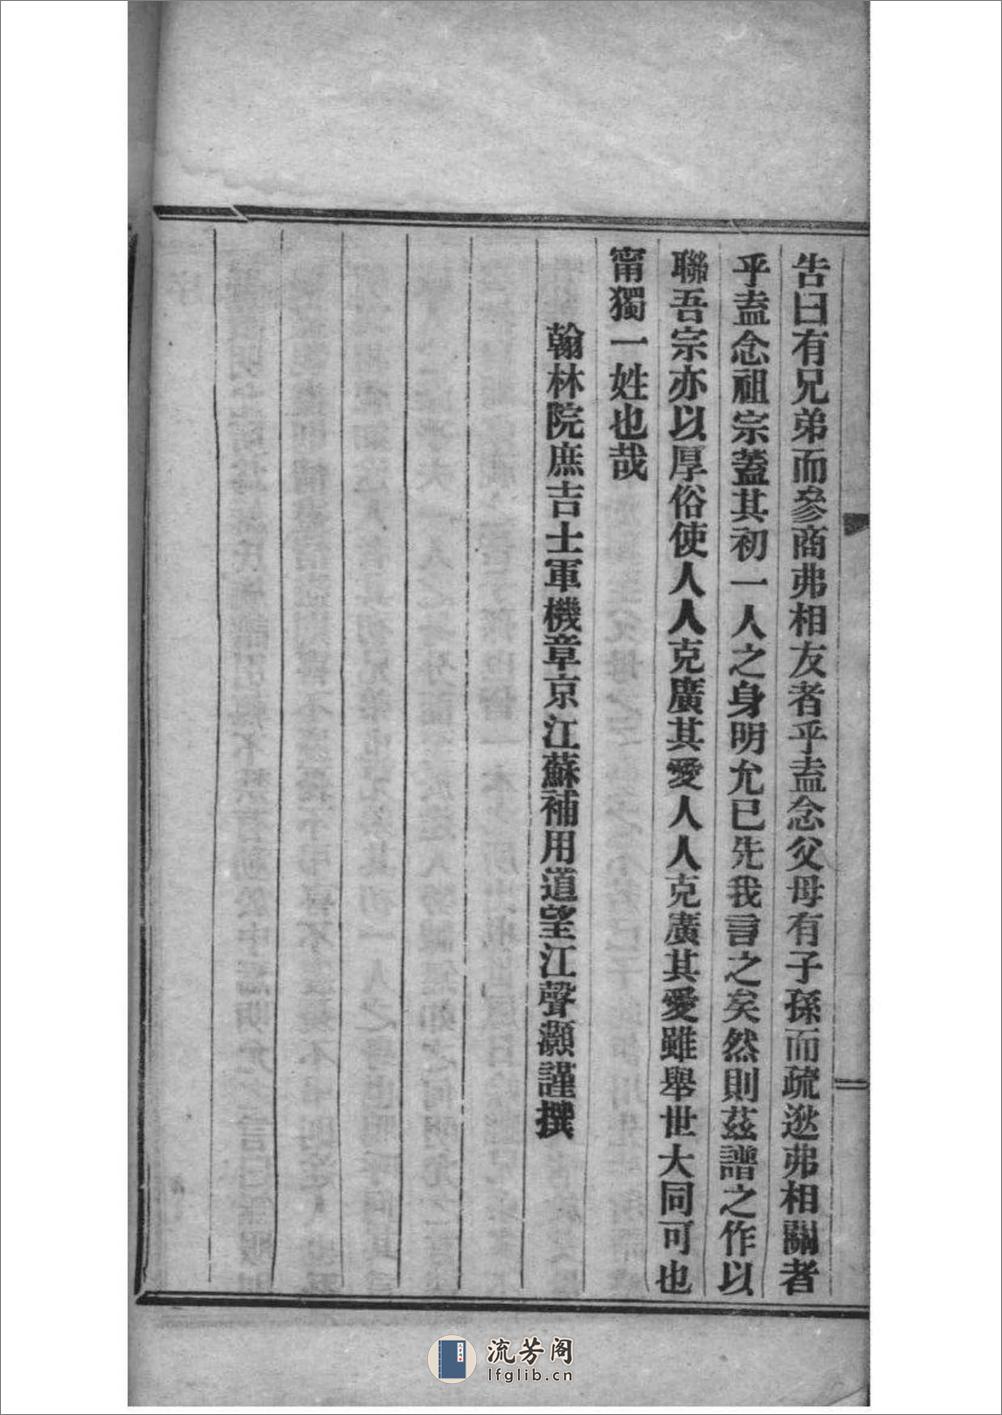 告曰有兄弟而參商弗相友者乎盍念父母有子孫而疏逖弗相關者
乎盍念祖宗蓋其初一人之身明允已先我言之矣然則茲譜之作以
聯吾宗亦以厚俗使人人克廣其愛人人克廣其愛雖舉世大同可也
甯獨一姓也哉
翰林院庶吉士軍機章京江蘇補用道望江聲灝謹撰
流芳阁
lfglib.cn